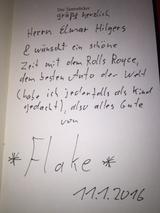 Der Tastenficker
grüßt herzlich
Herrn Elmar Hilgers
& wünscht ein schöne
Zeit mit dem Rolls Royce,
dem besten Auto der Welt
(habe ich jedenfalls als Kind
gedacht), also alles Gute
von
* Flake *
11.1.2016